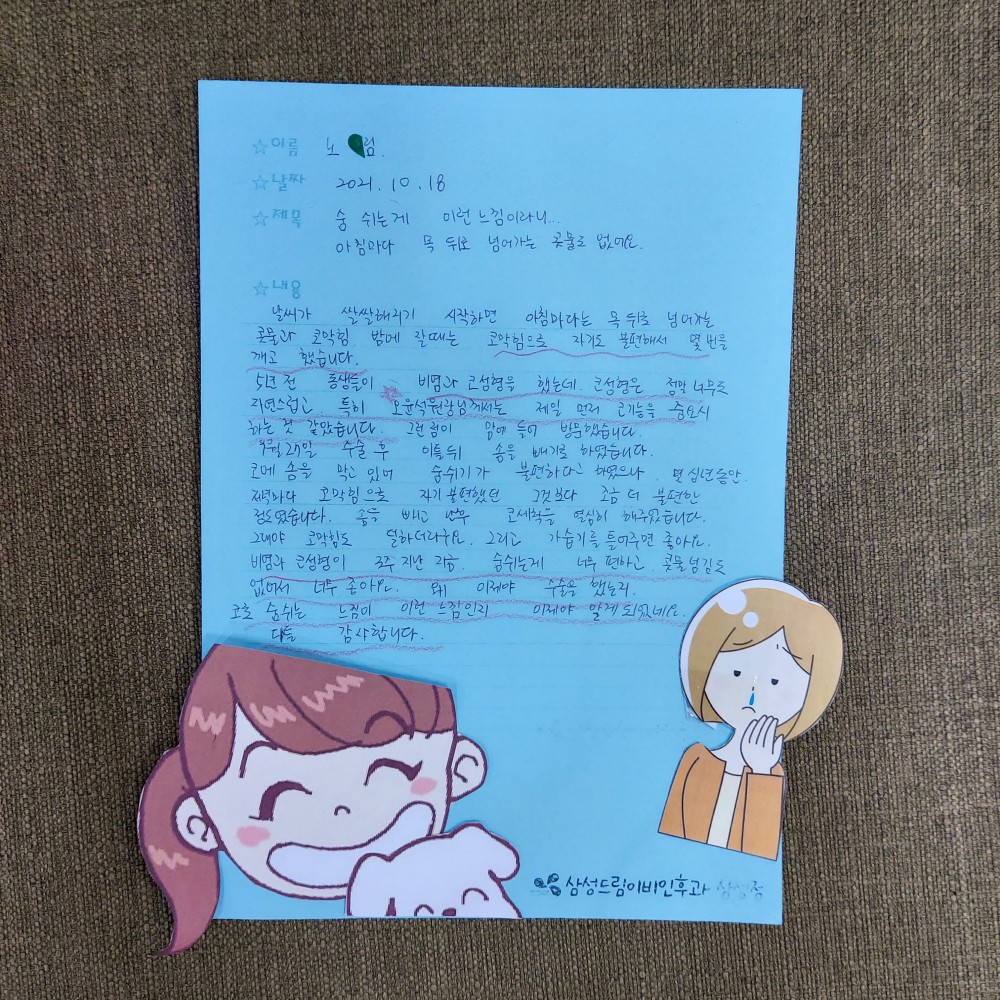 ☆이름 노 림.
☆날짜 2021. 10. 18
☆제목 숨 쉬는게 이런 느낌이라니...
아침마다 목 뒤로 넘어가는 콧물도 없어요.
☆내용
날씨가 쌀쌀해지기 시작하면 아침마다는 목 뒤로 넘어가는
콧물과 코막힘 밤에 잘때는 코막힘으로 자기도 불편해서 몇 번을
깨고 했습니다.
5년 전 동생들이 비염과 코성형을 했는데 코성형은 정말 너무도
자연스럽고 특히 오윤석원장님께서는 제일 먼저 코기능을 중요시
하는 것 같았습니다. 그런 점이 맘에 들어 방문했습니다.
9월 25일 수술 후 이틀뒤 솜을 빼기로 하였습니다.
코에 솜을 막고 있어 숨쉬기가 불편하다고 하였으나 몇 십년동안
저녁마다 코막힘으로 자기 불편했던 그것보다 조금 더 불편한
정도였습니다. 솜을 빼고 난후 코세척을 열심히 해주었습니다.
그래야 코막힘도 덜하더라구요. 그리고 가습기를 틀어주면 좋아요.
비염과 코성형이 3주 지난 지금 숨쉬는게 너무 편하고 콧물 넘김도
없어서 너무 좋아요. 왜 이제야 수술을 했는지
코로 숨쉬는 느낌이 이런 느낌인지 이제야 알게 되었네요.
다들 감사합니다.
삼성드림이비인후과 삼성점